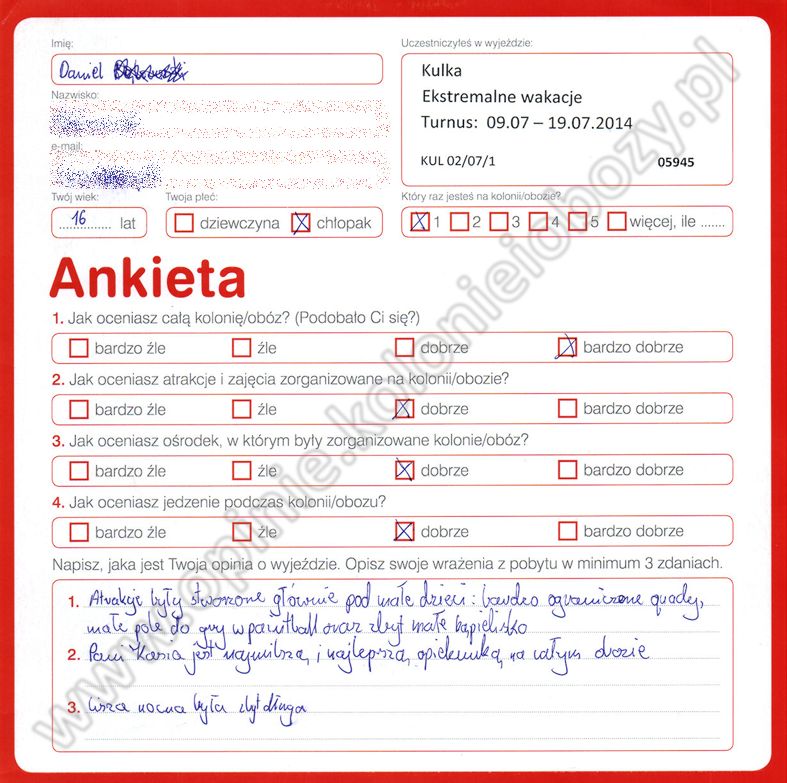 Imię:
Daniel
Nazwisko:
e-mail:
Uczestniczyłeś w wyjeździe:
Kulka
Ekstremalne wakacje
Turnus: 09.07 – 19.07.2014
KUL 02/07/1 05945
Twój wiek: Twoja płeć: Który raz jesteś na kolonii/obozie?
16 lat dziewczyna chłopak 1 2 3 4 5 więcej, ile .......
Ankieta
1. Jak oceniasz całą kolonię/obóz? (Podobało Ci się?)
bardzo źle źle dobrze bardzo dobrze
2. Jak oceniasz atrakcje i zajęcia zorganizowane na kolonii/obozie?
bardzo źle źle dobrze bardzo dobrze
3. Jak oceniasz ośrodek, w którym były zorganizowane kolonie/obóz?
bardzo źle źle dobrze bardzo dobrze
4. Jak oceniasz jedzenie podczas kolonii/obozu?
bardzo źle źle dobrze bardzo dobrze
Napisz, jaka jest Twoja opinia o wyjeździe. Opisz swoje wrażenia z pobytu w minimum 3 zdaniach.
1. Atrakcje były stworzone głównie pod małe dzieci: bardzo ograniczone quady,
małe pole do gry w paintball oraz zbyt małe kąpielisko
2. Pani Kasia jest najmilszą i najlepszą opiekunką na całym obozie
3. Cisza nocna była zbyt długa
www.opinie.kolonieiobozy.pl